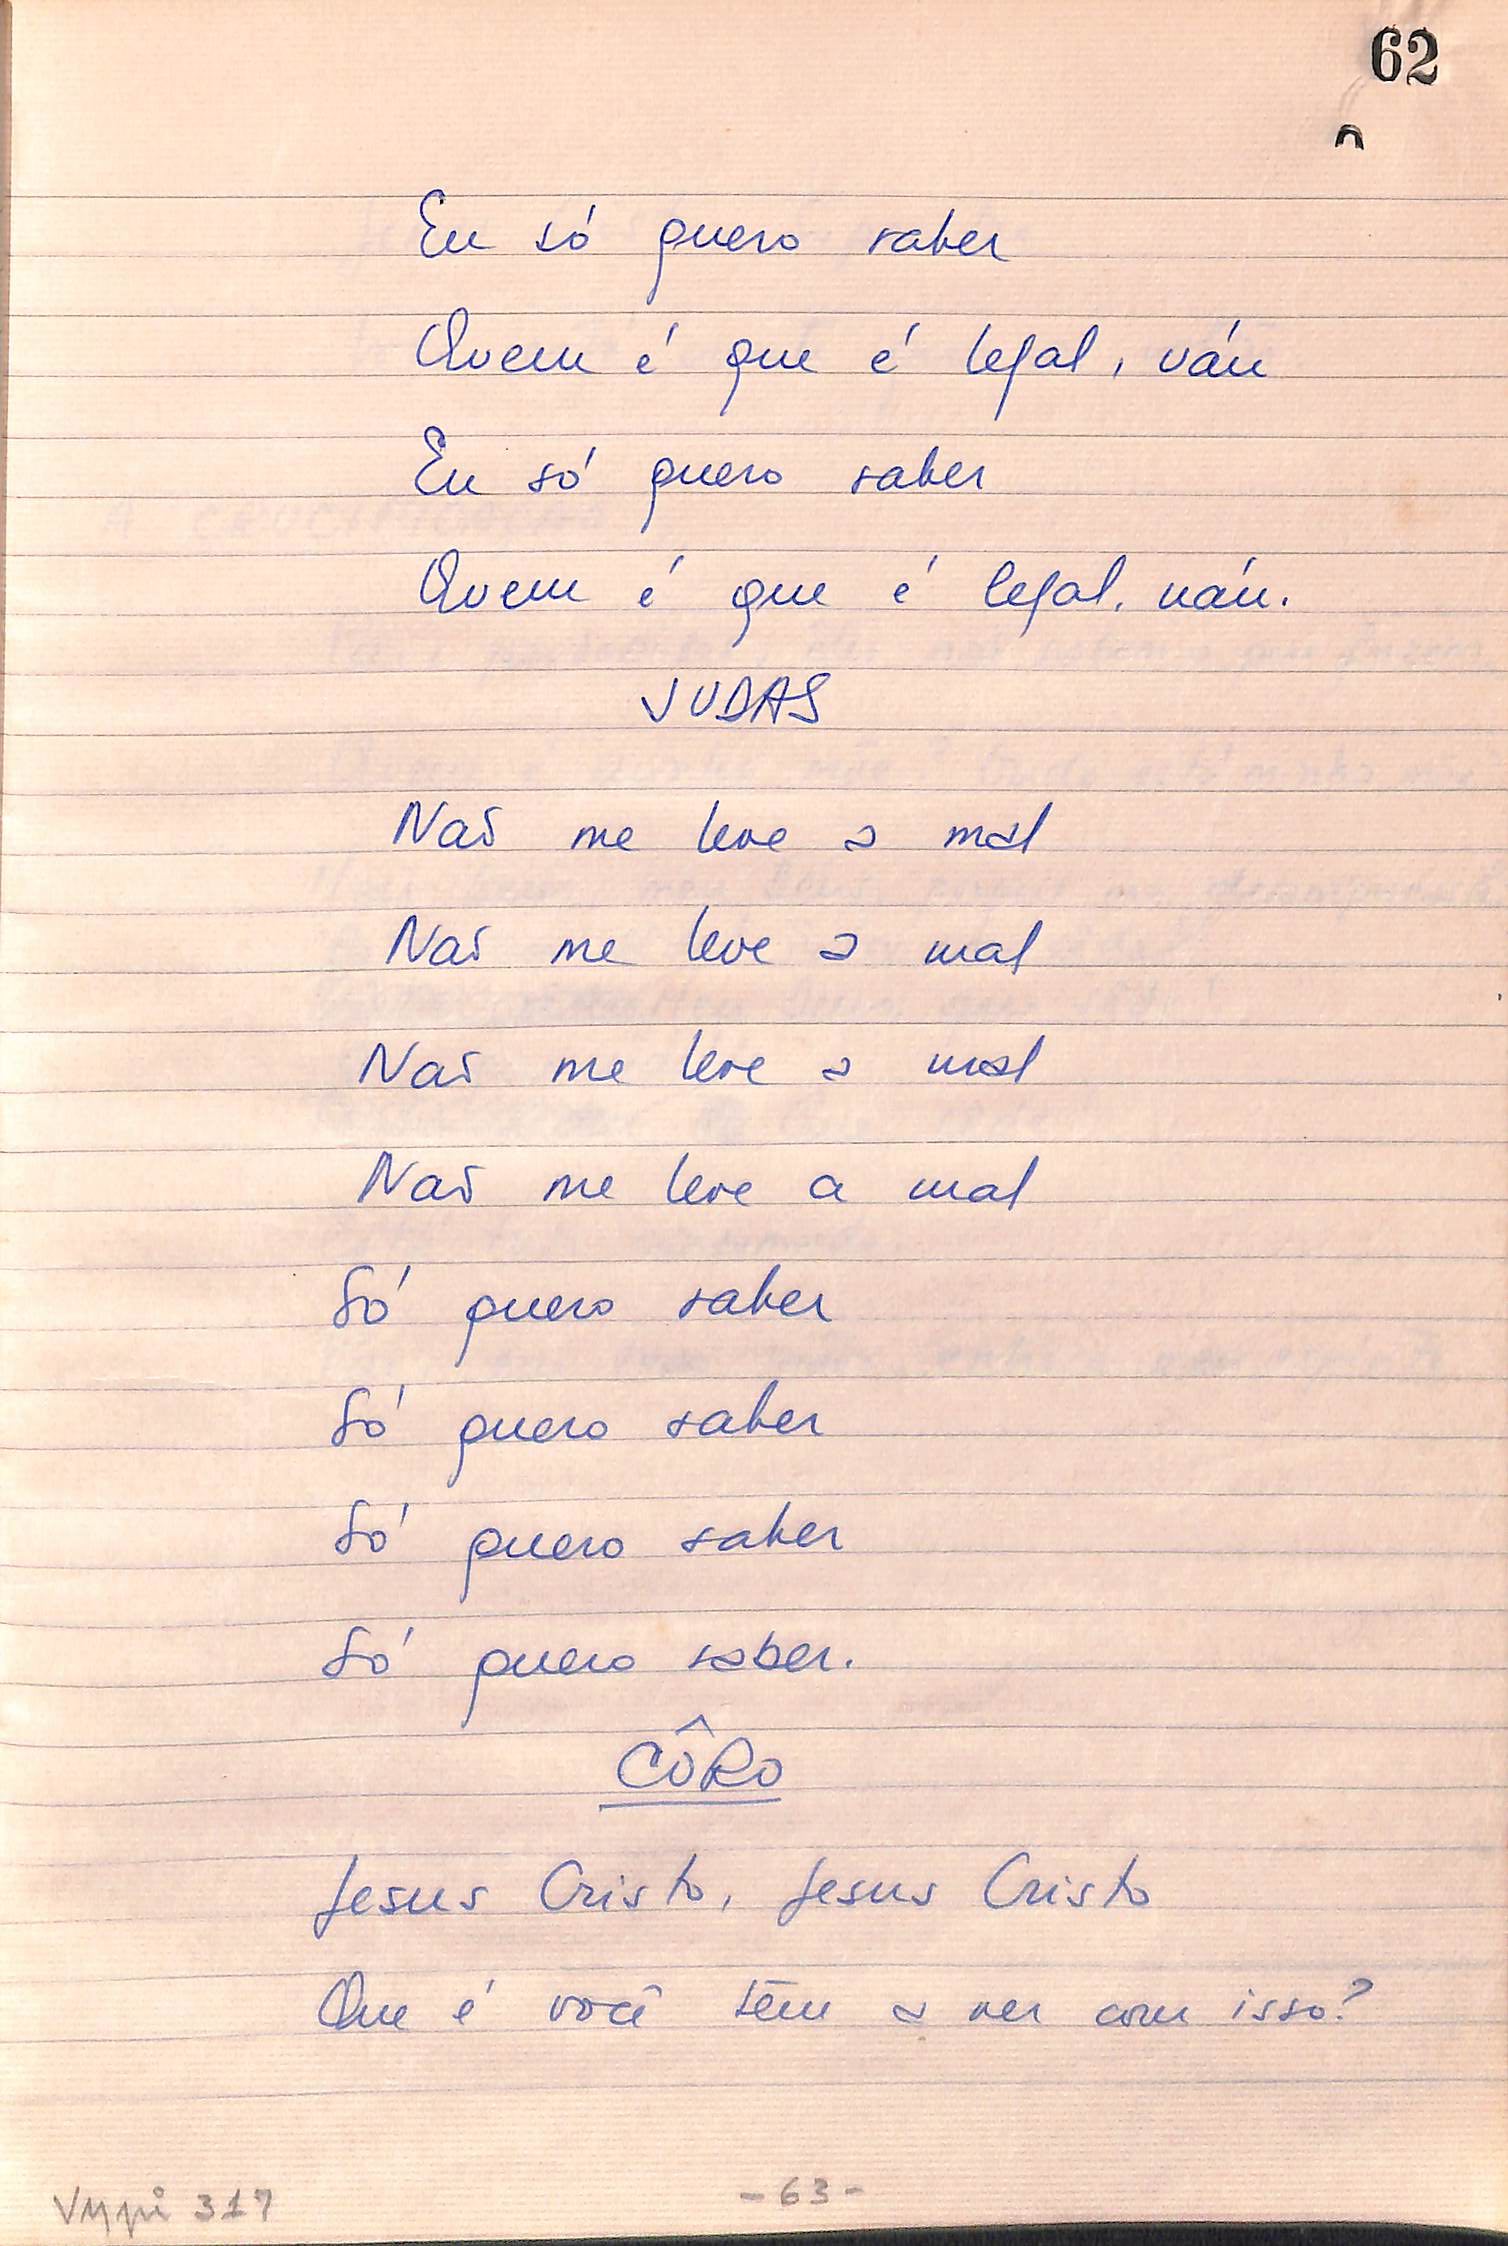 62
Eu só quero saber
Quem é que é legal, ván
Eu só quero saber
Quem é que é legal, nán.
JUDAS
Não me leve a mal
Não me leve a mal
Não me leve a mal
Não me leve a mal
Só quero saber
Só quero saber
Só quero saber
Só quero saber.
CÔRO
Jesus Cristo, Jesus Cristo
Que é você têm a ver com isso?
- 63 -
317